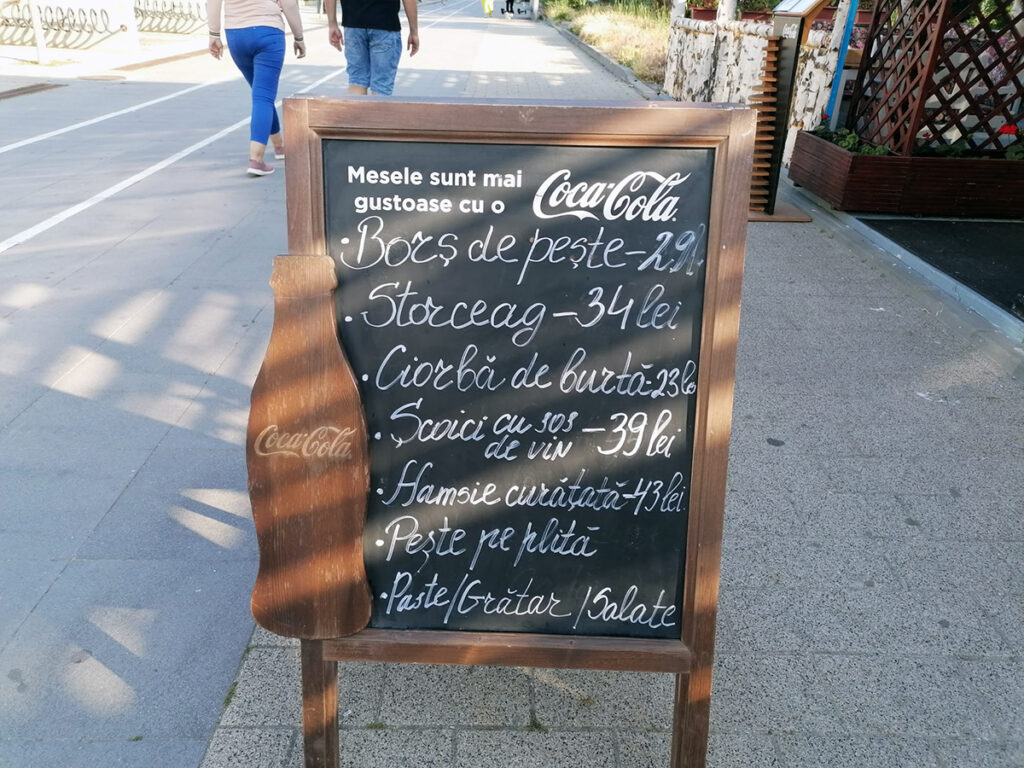 Mesele sunt mai
gustoase cu o Coca-Cola
• Borș de pește - 29l
• Storceag - 34 lei
• Ciorbă de burtă - 23 le
• Scoici cu sos
de vin - 39 lei
• Hamsie curățată - 43 lei
• Pește pe plită
• Paste / Grătar / Salate
Coca-Cola